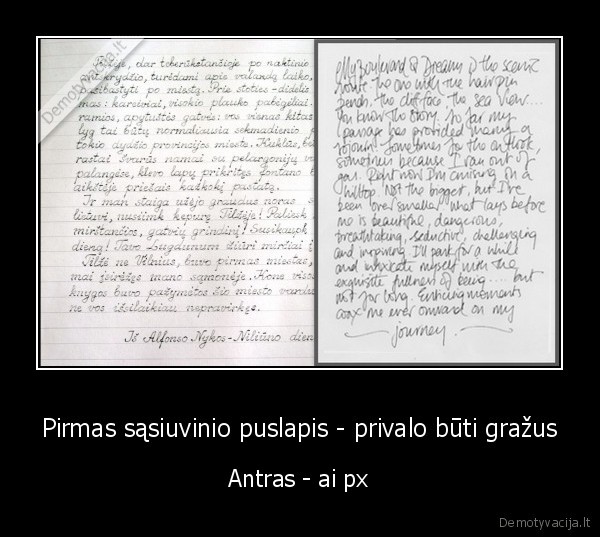 Demotyvacija.lt
Tilžėje, dar teberūkstančioje po naktinio
ant krydžio, turėdami apie valandą laiko,
pasibastyti po miestą. Prie stoties - didelis
mas: kareiviai, visokio plauko pabėgėliai.
ramios, apytuštės gatvės: vos vienas kitas
lyg tai būtų normaliausia sekmadienio
tokio dydžio provincijos mieste. Kuklūs, be
rastai švarūs namai su pelargonijų va
palangėse, klevo lapų prikritęs fontano b
aikštėje priešais kažkokį pastatą.
Ir man staiga užėjo graudus noras
lietuvi, nusiimk kepurę Tilžėje! Paliesk
mirštančios, gatvių grindinį! Susikaupk
dieną! Tavo Lugdunum žiūri mirčiai į
Tilžė ne Vilnius, buvo pirmas miestas,
mai įsirėžęs mano sąmonėje. Kone visos
knygos buvo pažymėtos šio miesto vardu
ne vos išsilaikiau nepravirkęs.
Iš Alfonso Nykos-Niliūno dien
My Boulevard of Dreams is the scenic
route. The one with the hairpin
bends, the cliff face, the sea view....
You know the story. So far my
passage has provided many a
sojourn. Sometimes for the outlook,
sometimes because I ran out of
gas. Right now I'm cruising on a
hilltop. Not the biggest, but I've
been over smaller. What lays before
me is beautiful, dangerous,
breathtaking, seductive, challenging
and inspiring. I'll park for a while
and intoxicate myself with the
exquisite fullness of being..... but
not for long. Enticing moments
coax me ever onward on my
journey.
Pirmas sąsiuvinio puslapis - privalo būti gražus
Antras - ai px
Demotyvacija.lt